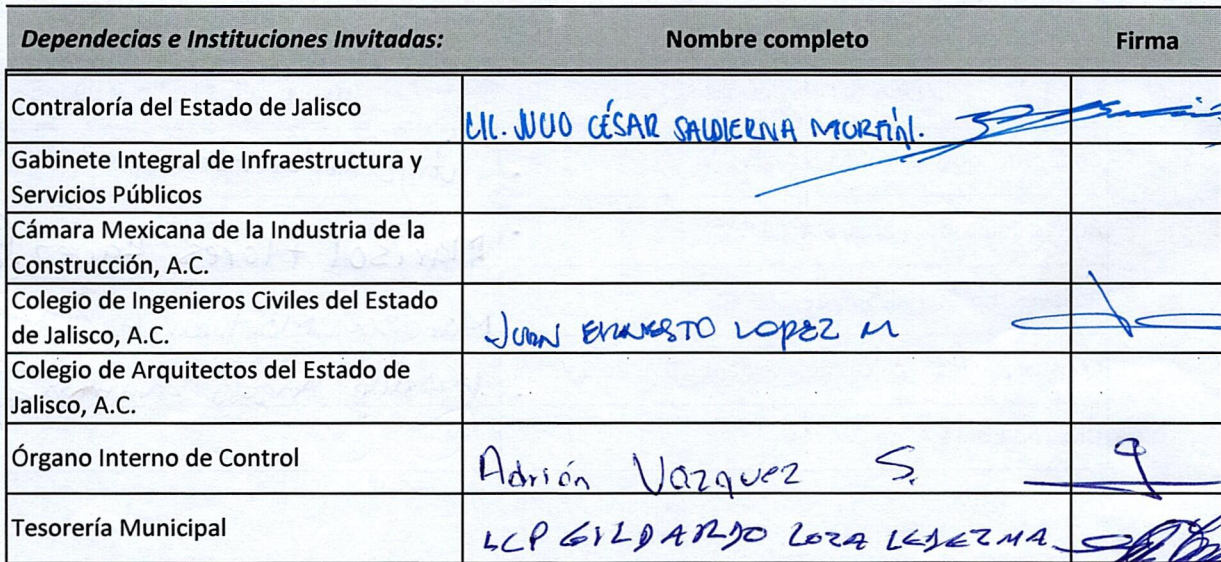 Dependecias e Instituciones Invitadas: Nombre completo Firma
Contraloría del Estado de Jalisco LIC. JULIO CÉSAR SALDIERNA MORFÍN.
Gabinete Integral de Infraestructura y
Servicios Públicos
Cámara Mexicana de la Industria de la
Construcción, A.C.
Colegio de Ingenieros Civiles del Estado
de Jalisco, A.C. JUAN ERNESTO LOPEZ M
Colegio de Arquitectos del Estado de
Jalisco, A.C.
Órgano Interno de Control Adrión Vazquez S.
Tesorería Municipal LCP GILDARDO LOZA LEDEZMA